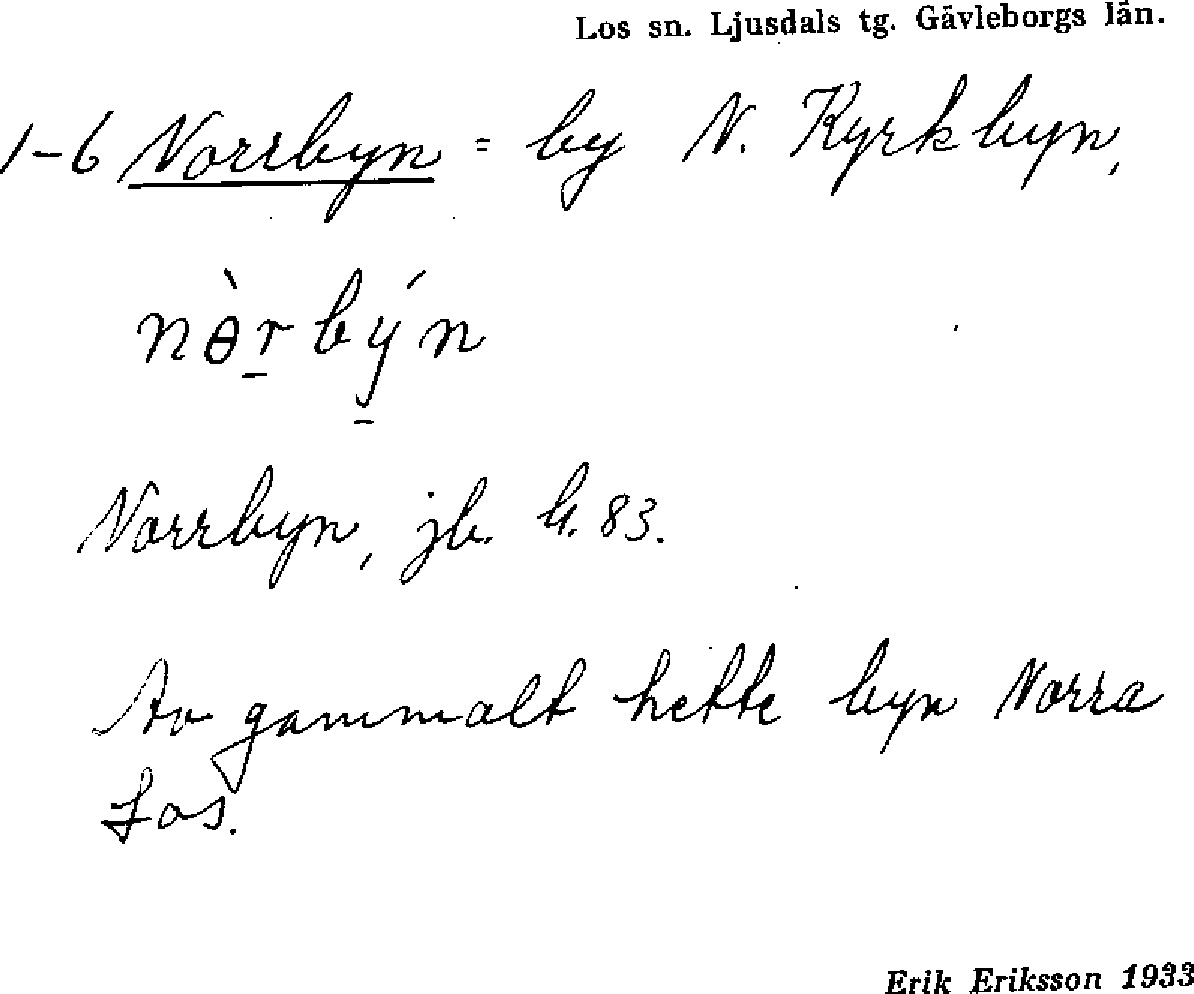 Los sn. Ljusdals tg. Gävleborgs län.
1-6 Norrbyn = by N. Kyrkbyn,
nɵ̀r̠bý̠n
Norrbyn, jb. h. 83.
Av gammalt hette byn Norra
Los.
Erik Eriksson 1933